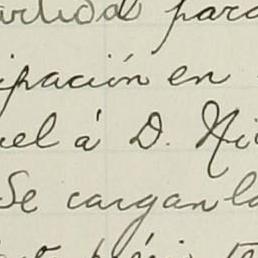 partida para
ipación en
uel á D. Ni
Se cargan la